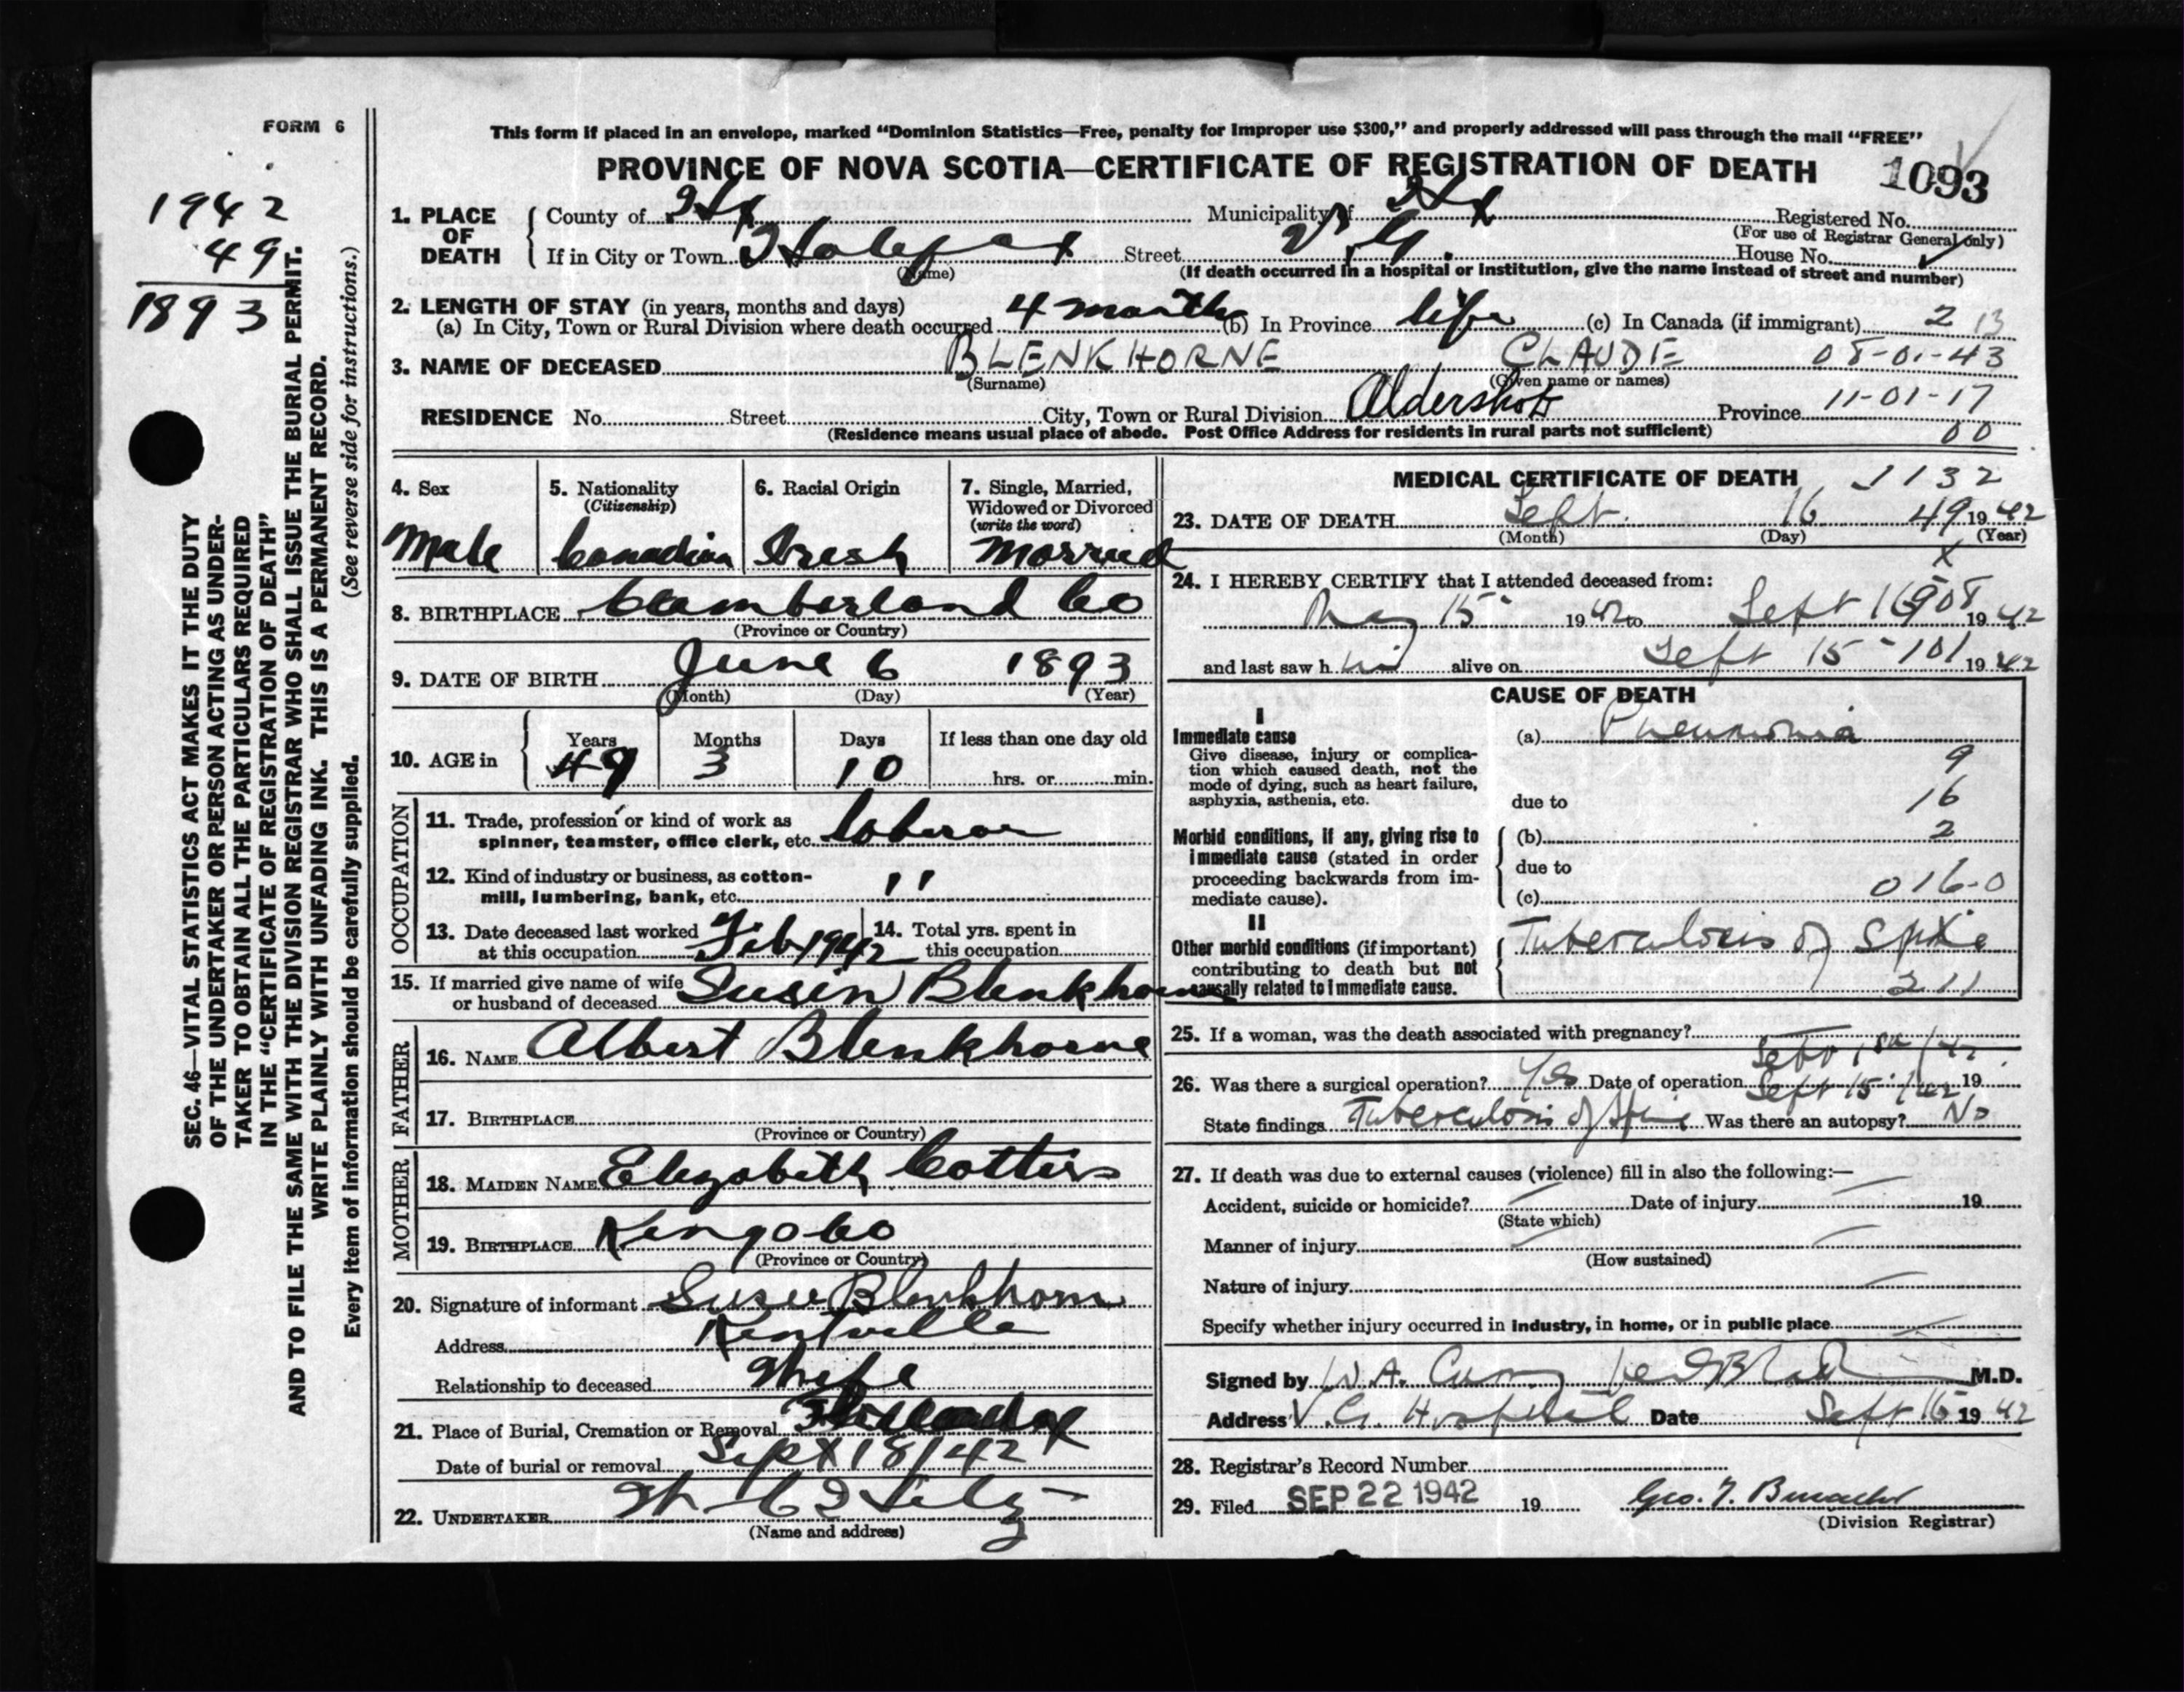 FORM 6
This form if placed in an envelope, marked “Dominion Statistics—Free, penalty for improper use $300,” and properly addressed will pass through the mail “FREE”
PROVINCE OF NOVA SCOTIA—CERTIFICATE OF REGISTRATION OF DEATH 1093
1942
49
1893
SEC. 46—VITAL STATISTICS ACT MAKES IT THE DUTY
OF THE UNDERTAKER OR PERSON ACTING AS UNDER-
TAKER TO OBTAIN ALL THE PARTICULARS REQUIRED
IN THE “CERTIFICATE OF REGISTRATION OF DEATH”
AND TO FILE THE SAME WITH THE DIVISION REGISTRAR WHO SHALL ISSUE THE BURIAL PERMIT.
WRITE PLAINLY WITH UNFADING INK. THIS IS A PERMANENT RECORD.
Every item of information should be carefully supplied. (See reverse side for instructions.)
1. PLACE OF DEATH
County of Hfx Municipality of Hfx Registered No.
(For use of Registrar General only)
If in City or Town Halifax Street V. G. House No.
(Name) (If death occurred in a hospital or institution, give the name instead of street and number)
2. LENGTH OF STAY (in years, months and days)
(a) In City, Town or Rural Division where death occurred 4 months (b) In Province life (c) In Canada (if immigrant) 2 13
3. NAME OF DECEASED BLENKHORNE CLAUDE 08-01-43
(Surname) (Given name or names)
RESIDENCE No. Street City, Town or Rural Division Aldershot Province 11-01-17
(Residence means usual place of abode. Post Office Address for residents in rural parts not sufficient) 00
4. Sex Male
5. Nationality (Citizenship) Canadian
6. Racial Origin Iresh
7. Single, Married, Widowed or Divorced (write the word) Married
8. BIRTHPLACE Cumberland Co
(Province or Country)
9. DATE OF BIRTH June 6 1893
(Month) (Day) (Year)
10. AGE in Years 49 Months 3 Days 10 If less than one day old hrs. or min.
OCCUPATION
11. Trade, profession or kind of work as
spinner, teamster, office clerk, etc. Laberar
12. Kind of industry or business, as cotton-
mill, lumbering, bank, etc. ''
13. Date deceased last worked
at this occupation Feb 1942
14. Total yrs. spent in
this occupation
15. If married give name of wife
or husband of deceased Susin Blenkhorne
FATHER
16. NAME Albert Blenkhorne
17. BIRTHPLACE
(Province or Country)
MOTHER
18. MAIDEN NAME Elizabeth
19. BIRTHPLACE Kings Co
(Province or Country)
20. Signature of informant Susie Blenkhorn
Address Kentville
Relationship to deceased Wife
21. Place of Burial, Cremation or Removal
Date of burial or removal Sept 18/42
22. UNDERTAKER
(Name and address)
MEDICAL CERTIFICATE OF DEATH 1132
23. DATE OF DEATH Sept. 16 49 1942
(Month) (Day) (Year)
X
24. I HEREBY CERTIFY that I attended deceased from:
May 15 1942 to Sept 16 908 1942
and last saw h im alive on Sept 15 - 101 1942
CAUSE OF DEATH
I
Immediate cause
Give disease, injury or complica-
tion which caused death, not the
mode of dying, such as heart failure,
asphyxia, asthenia, etc.
(a) Pneumonia
9
due to 16
Morbid conditions, if any, giving rise to
immediate cause (stated in order
proceeding backwards from im-
mediate cause).
(b) 2
due to
(c) 016-0
II
Other morbid conditions (if important)
contributing to death but not
causally related to immediate cause.
Tuberculosis of Spine
211
25. If a woman, was the death associated with pregnancy?
26. Was there a surgical operation? Yes Date of operation Sept 15/42 19
State findings Tuberculosis of Spine Was there an autopsy? No
27. If death was due to external causes (violence) fill in also the following:—
Accident, suicide or homicide? Date of injury 19
(State which)
Manner of injury
(How sustained)
Nature of injury
Specify whether injury occurred in industry, in home, or in public place
Signed by W. A. Curry M.D.
Address V. G. Hospital Date Sept 16 1942
28. Registrar's Record Number
29. Filed SEP 22 1942 19 Geo. T.
(Division Registrar)